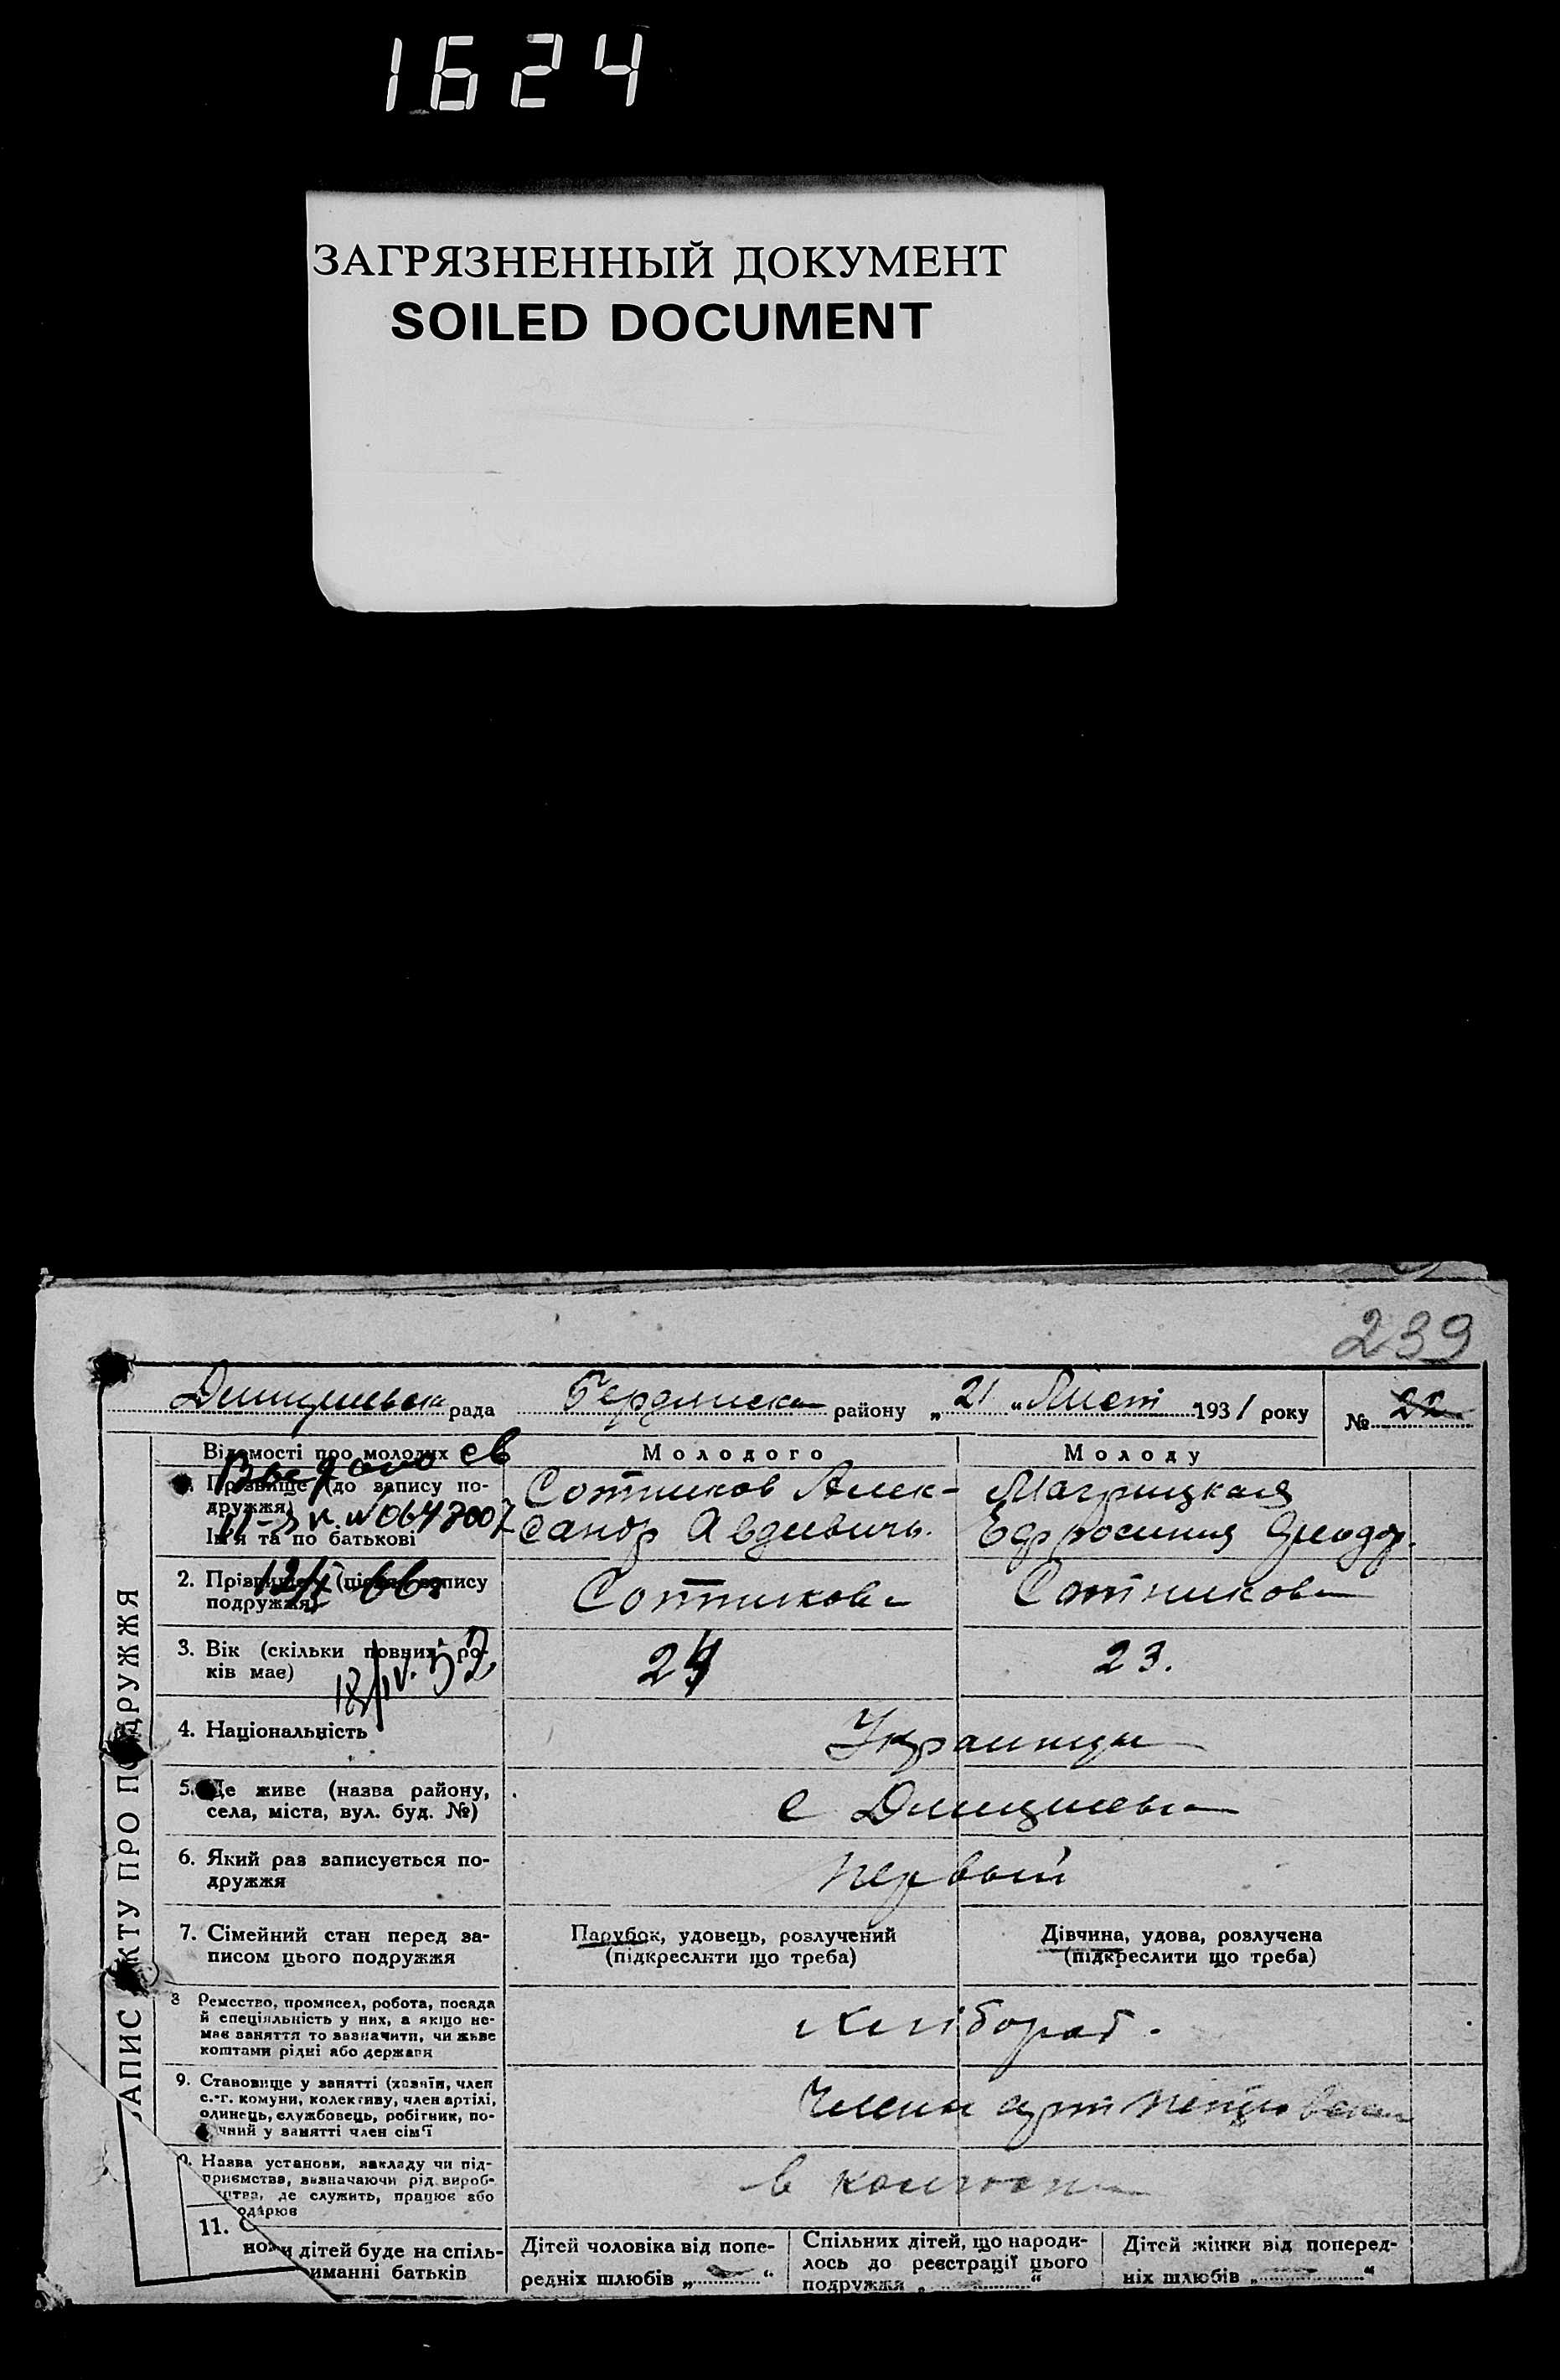 1624
ЗАГРЯЗНЕННЫЙ ДОКУМЕНТ
SOILED DOCUMENT
239
рада района району „21“ Лист 1931 року № 22.
АПИС КТУ ПРО ПОДРУЖЖЯ
Відомості про молодих
Молодого
Молоду
Прізвище (до запису по-
дружжя)
Ім'я та по батькові
Сотников Алек-
сандр Авдиевичь.
Магрицкая
Ефросиния
2. Прізвище (після запису
подружжя)
Сотников
Сотников
3. Вік (скільки повних ро-
ків має)
18/IV.52
24
23.
4. Національність
Украинцы
5. Де живе (назва району,
села, міста, вул. буд. №)
с
6. Який раз записується по-
дружжя
первый
7. Сімейний стан перед за-
писом цього подружжя
Парубок, удовець, розлучений
(підкреслити що треба)
Дівчина, удова, розлучена
(підкреслити що треба)
8 Ремество, промисел, робота, посада
й спеціяльність у них, а якщо не-
має заняття то зазначити, чи живе
коштами рідні або держави
хлібороб.
9. Становище у занятті (хазяїн, член
с.-г. комуни, колективу, член артілі,
одинець, службовець, робітник, по-
чний у занятті член сім'ї
Члени арт
Назва установи, закладу чи під-
приємства, визначаючи рід вироб-
цтва, де служить, працює або
одарює
в
11.
и дітей буде на спіль-
иманні батьків
Дітей чоловіка від попе-
редніх шлюбів „ “
Спільних дітей, що народи-
лось до реєстрації цього
подружжя „ “
Дітей жінки від поперед-
ніх шлюбів „ “